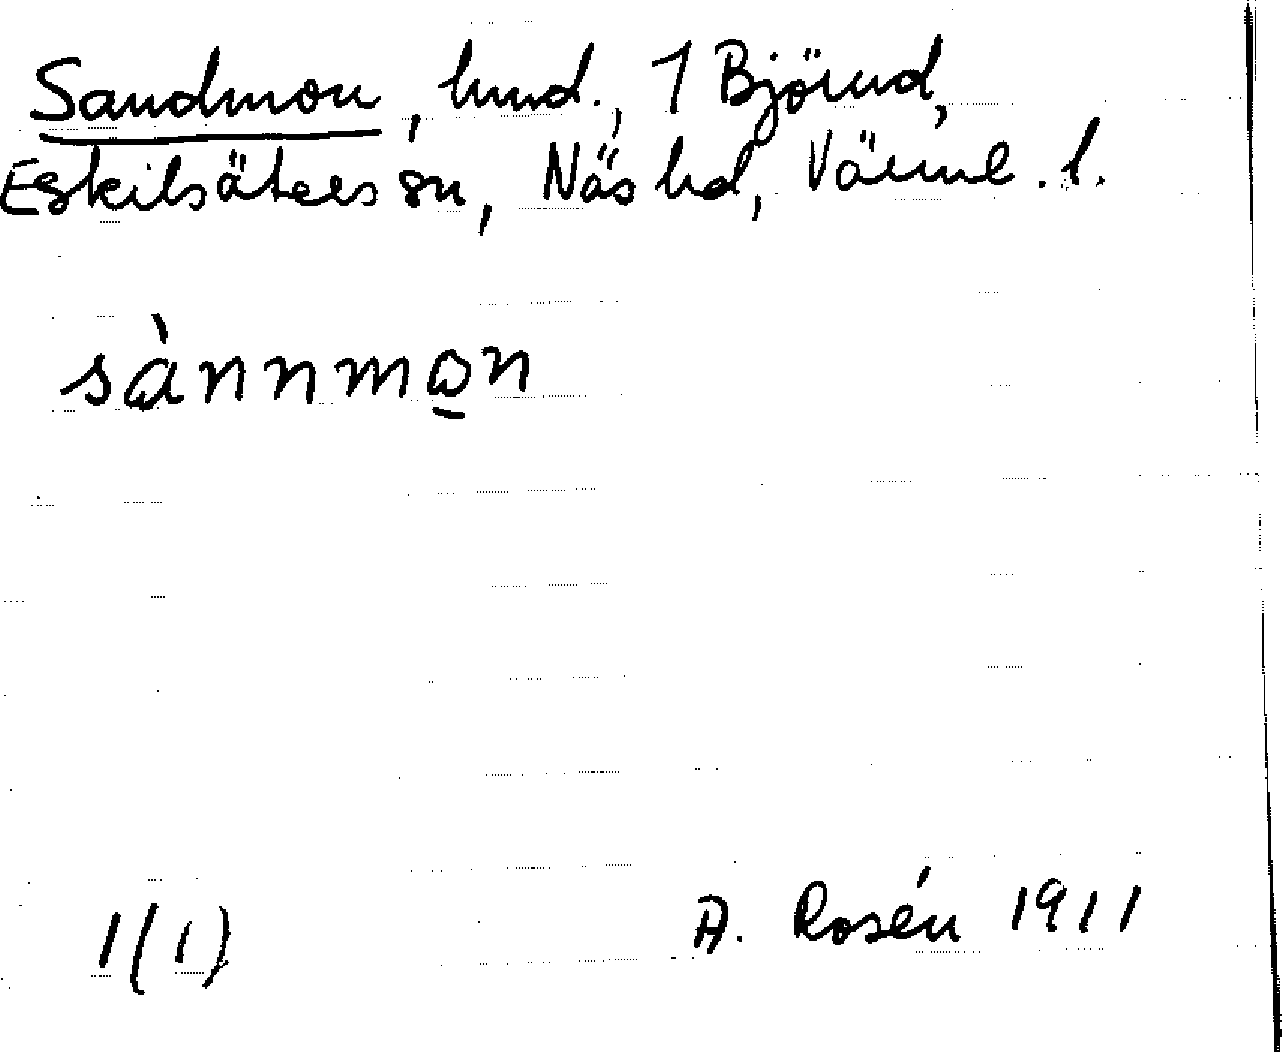 Sandmon, hmd., 1 Björud,
Eskilsäters sn, Näs hd, Värml. l.
sànnmo̲n
1(1) A. Rosén 1911